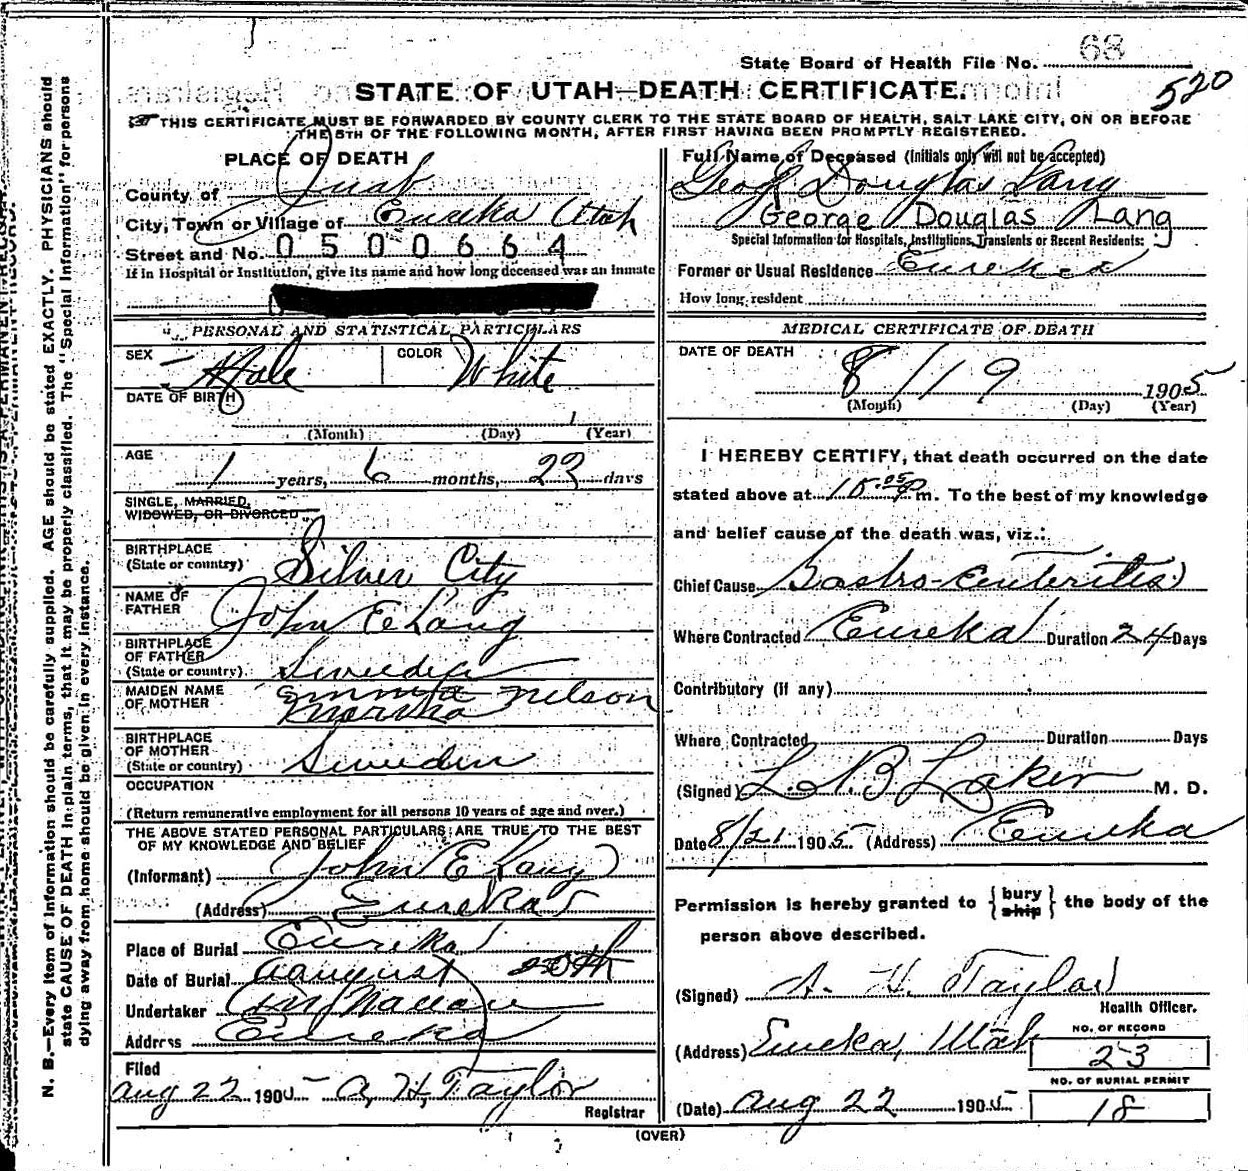 State Board of Health File No. 68
STATE OF UTAH—DEATH CERTIFICATE.
520
THIS CERTIFICATE MUST BE FORWARDED BY COUNTY CLERK TO THE STATE BOARD OF HEALTH, SALT LAKE CITY, ON OR BEFORE
THE 5TH OF THE FOLLOWING MONTH, AFTER FIRST HAVING BEEN PROMPTLY REGISTERED.
PLACE OF DEATH
County of Juab
City, Town or Village of Eureka Utah
Street and No. 0500664
If in Hospital or Institution, give its name and how long deceased was an inmate
PERSONAL AND STATISTICAL PARTICULARS
SEX Male COLOR White
DATE OF BIRTH
(Month) (Day) (Year)
AGE
1 years, 6 months, 23 days
SINGLE, MARRIED,
WIDOWED, OR DIVORCED
BIRTHPLACE
(State or country) Silver City
NAME OF
FATHER John E Lang
BIRTHPLACE
OF FATHER
(State or country) Sweeden
MAIDEN NAME
OF MOTHER Emma Nelson
BIRTHPLACE
OF MOTHER
(State or country) Sweeden
OCCUPATION
(Return remunerative employment for all persons 10 years of age and over.)
THE ABOVE STATED PERSONAL PARTICULARS ARE TRUE TO THE BEST
OF MY KNOWLEDGE AND BELIEF
(Informant) John E Lang
(Address) Eureka
Place of Burial Eureka
Date of Burial august 20th
Undertaker
Address Eureka
Filed
Aug 22 1905 A. H. Taylor
Registrar
Full Name of Deceased (Initials only will not be accepted)
Geo Douglas Lang
George Douglas Lang
Special Information for Hospitals, Institutions, Transients or Recent Residents:
Former or Usual Residence Eureka
How long resident
MEDICAL CERTIFICATE OF DEATH
DATE OF DEATH
8 / 19 1905
(Month) (Day) (Year)
I HEREBY CERTIFY, that death occurred on the date
stated above at 10.05 P m. To the best of my knowledge
and belief cause of the death was, viz.:
Chief Cause Gastro-Enteritis
Where Contracted Eureka Duration 24 Days
Contributory (if any)
Where Contracted Duration Days
(Signed) L. N. B Laker M. D.
Date 8/21 1905 (Address) Eureka
Permission is hereby granted to { bury ship } the body of the
person above described.
(Signed) A. H. Taylor
Health Officer.
(Address) Eureka, Utah
NO. OF RECORD
23
NO. OF BURIAL PERMIT
(Date) Aug 22 1905 18
(OVER)
N. B.—Every item of information should be carefully supplied. AGE should be stated EXACTLY. PHYSICIANS should
state CAUSE OF DEATH in plain terms, that it may be properly classified. The "Special Information" for persons
dying away from home should be given in every instance.